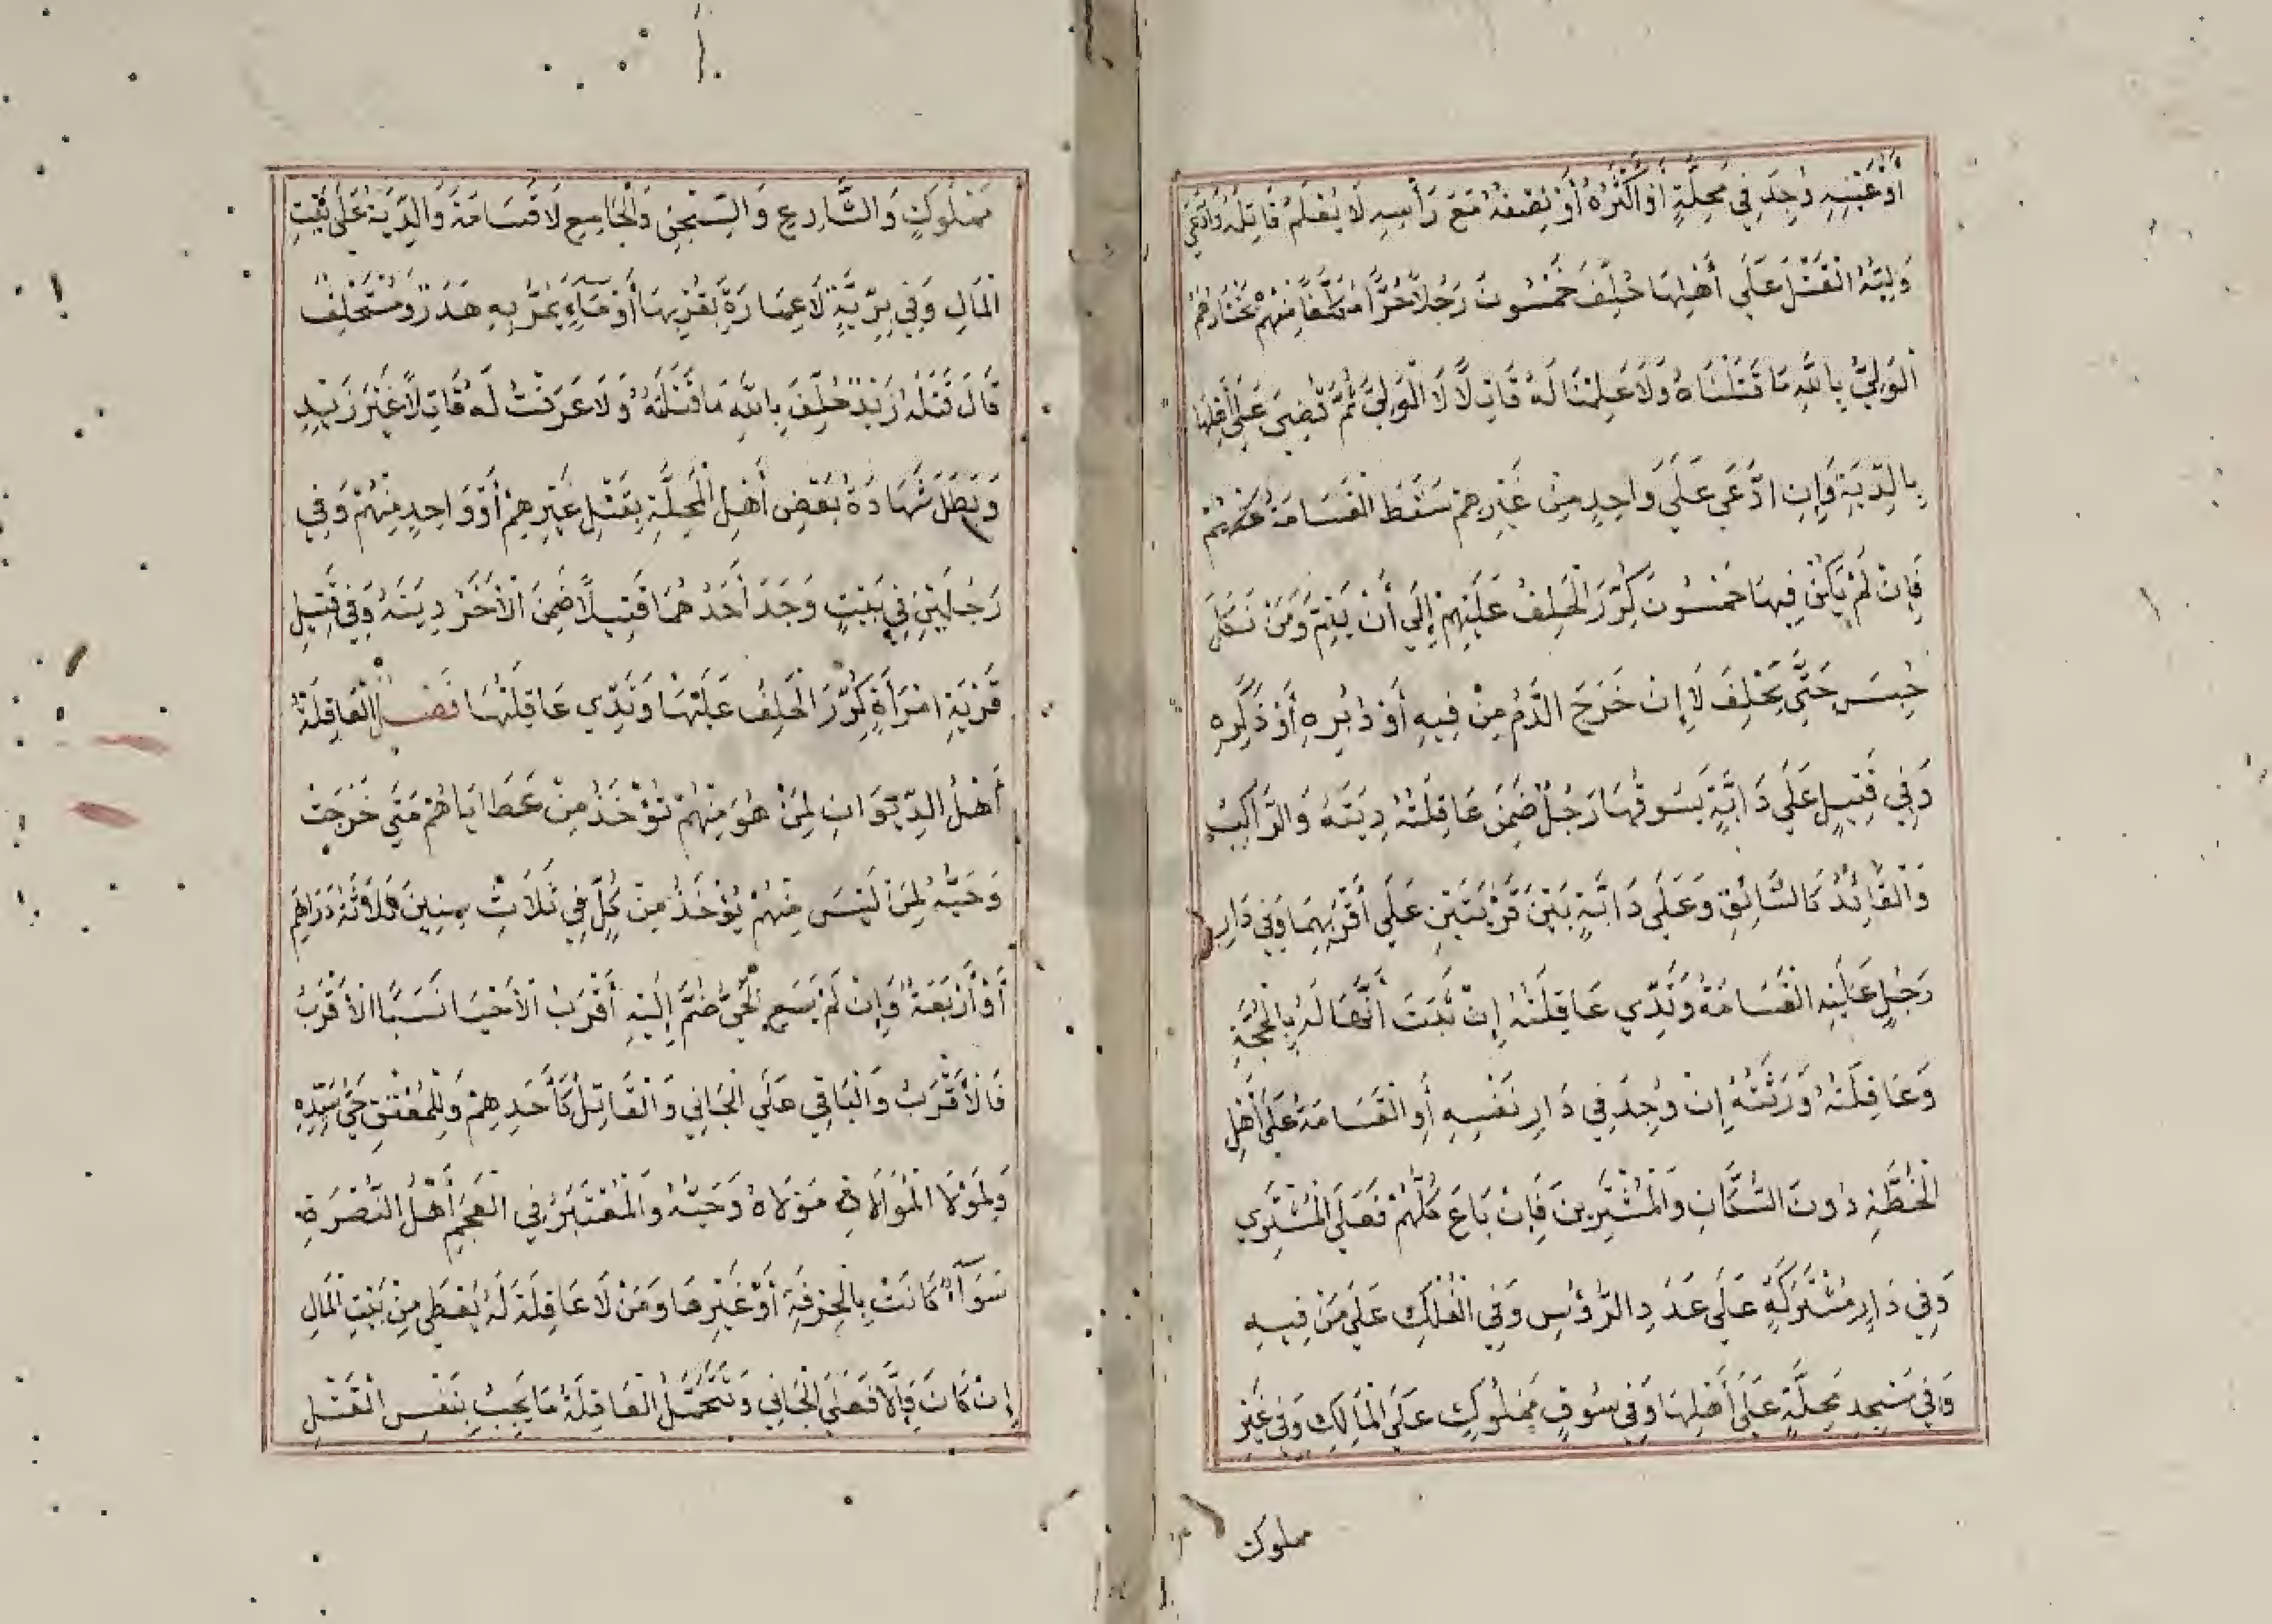 أَوْ عَيْنِهِ وُجِدَ فِي مَحَلَّةٍ أَوْ أَكْثَرُهُ أَوْ نِصْفُهُ مَعَ رَأْسِهِ لَا يُعْلَمُ قَاتِلُهُ وَادَّعَى
وَلِيُّهُ الْقَتْلَ عَلَى أَهْلِهَا حُلِّفَ خَمْسُونَ رَجُلًا حُرًّا مُكَلَّفًا مِنْهُمْ يَخْتَارُهُمْ
الْوَلِيُّ بِاللَّهِ مَا قَتَلْنَاهُ وَلَا عَلِمْنَا لَهُ قَاتِلًا لَا الْوَلِيُّ ثُمَّ قُضِيَ عَلَى أَهْلِهَا
بِالدِّيَةِ وَإِنِ ادَّعَى عَلَى وَاحِدٍ مِنْ غَيْرِهِمْ سَقَطَ الْقَسَامَةُ عَنْهُمْ
فَإِنْ لَمْ يَكُنْ فِيهَا خَمْسُونَ كُرِّرَ الْحَلِفُ عَلَيْهِمْ إِلَى أَنْ يَتِمَّ وَمَنْ نَكَلَ
حُبِسَ حَتَّى يَحْلِفَ لَا إِنْ خَرَجَ الدَّمُ مِنْ فِيهِ أَوْ دُبُرِهِ أَوْ ذَكَرِهِ
وَفِي قَتِيلٍ عَلَى دَابَّةٍ يَسُوقُهَا رَجُلٌ ضَمِنَ عَاقِلَتُهُ دِيَتَهُ وَالرَّاكِبُ
وَالْقَائِدُ كَالسَّائِقِ وَعَلَى دَابَّةٍ بَيْنَ قَرْيَتَيْنِ عَلَى أَقْرَبِهِمَا وَفِي دَارِ
رَجُلٍ عَلَيْهِ الْقَسَامَةُ وَتَدِي عَاقِلَتُهُ إِنْ ثَبَتَ أَنَّهَا لَهُ بِالْحُجَّةِ
وَعَاقِلَتُهُ وَرَثَتُهُ إِنْ وُجِدَ فِي دَارِ نَفْسِهِ أَوِ الْقَسَامَةُ عَلَى أَهْلِ
الْخِطَّةِ دُونَ السُّكَّانِ وَالْمُشْتَرِينَ فَإِنْ بَاعَ كُلُّهُمْ فَعَلَى الْمُشْتَرِي
وَفِي دَارٍ مُشْتَرَكَةٍ عَلَى عَدَدِ الرُّؤُسِ وَفِي الْفُلْكِ عَلَى مَنْ فِيهِ
وَفِي مَسْجِدِ مَحَلَّةٍ عَلَى أَهْلِهَا وَفِي سُوقٍ مَمْلُوكٍ عَلَى الْمَالِكِ وَفِي غَيْرِ
مملوك
مَمْلُوكٍ وَالشَّارِعِ وَالسِّجْنِ وَالْجَامِعِ لَا قَسَامَةَ وَالدِّيَةُ عَلَى بَيْتِ
الْمَالِ وَفِي بَرِّيَّةٍ لَا عِمَارَةَ بِقُرْبِهَا أَوْ مَاءٍ يَمُرُّ بِهِ هَدَرٌ وَمُسْتَحْلِفٌ
قَالَ قَتَلَهُ زَيْدٌ حُلِّفَ بِاللَّهِ مَا قَتَلْتُهُ وَلَا عَرَفْتُ لَهُ قَاتِلًا غَيْرَ زَيْدٍ
وَبَطَلَ شَهَادَةُ بَعْضِ أَهْلِ الْمَحَلَّةِ بِقَتْلِ غَيْرِهِمْ أَوْ وَاحِدٍ مِنْهُمْ وَفِي
رَجُلَيْنِ فِي بَيْتٍ وَجَدَ أَحَدُهُمَا قَتِيلًا ضَمِنَ الْآخَرُ دِيَتَهُ وَفِي قَتِيلِ
قَرْيَةِ امْرَأَةٍ كُرِّرَ الْحَلِفُ عَلَيْهَا وَتَدِي عَاقِلَتُهَا فَصْلٌ الْعَاقِلَةُ
أَهْلُ الدِّيوَانِ لِمَنْ هُوَ مِنْهُمْ تُؤْخَذُ مِنْ عَطَايَاهُمْ مَتَى خَرَجَتْ
وَحَيُّهُ لِمَنْ لَيْسَ مِنْهُمْ يُؤْخَذُ مِنْ كُلٍّ فِي ثَلَاثِ سِنِينَ ثَلَاثَةُ دَرَاهِمَ
أَوْ أَرْبَعَةٌ وَإِنْ لَمْ يَسَعِ الْحَيُّ ضُمَّ إِلَيْهِ أَقْرَبُ الْأَحْيَا نَسَبًا الْأَقْرَبُ
فَالْأَقْرَبُ وَالْبَاقِي عَلَى الْجَانِي وَالْقَاتِلُ كَأَحَدِهِمْ وَلِلْمُعْتَقِ حَيُّ سَيِّدِهِ
وَلِمَوْلَا الْمُوَالَاةِ مَوْلَاهُ وَحَيُّهُ وَالْمُعْتَبَرُ فِي الْعَجَمِ أَهْلُ النُّصْرَةِ
سَوَآءٌ كَانَتْ بِالْحِرْفَةِ أَوْ غَيْرِهَا وَمَنْ لَا عَاقِلَةَ لَهُ يُعْطَى مِنْ بَيْتِ الْمَالِ
إِنْ كَانَ وَإِلَّا فَعَلَى الْجَانِي وَتَتَحَمَّلُ الْعَاقِلَةُ مَا يَجِبُ بِنَفْسِ الْقَتْلِ